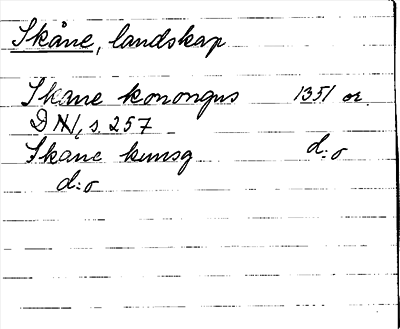 Skåne, landskap
Skane konongus 1351 or.
DN 1, s. 257
Skane kunsg d:o
d:o